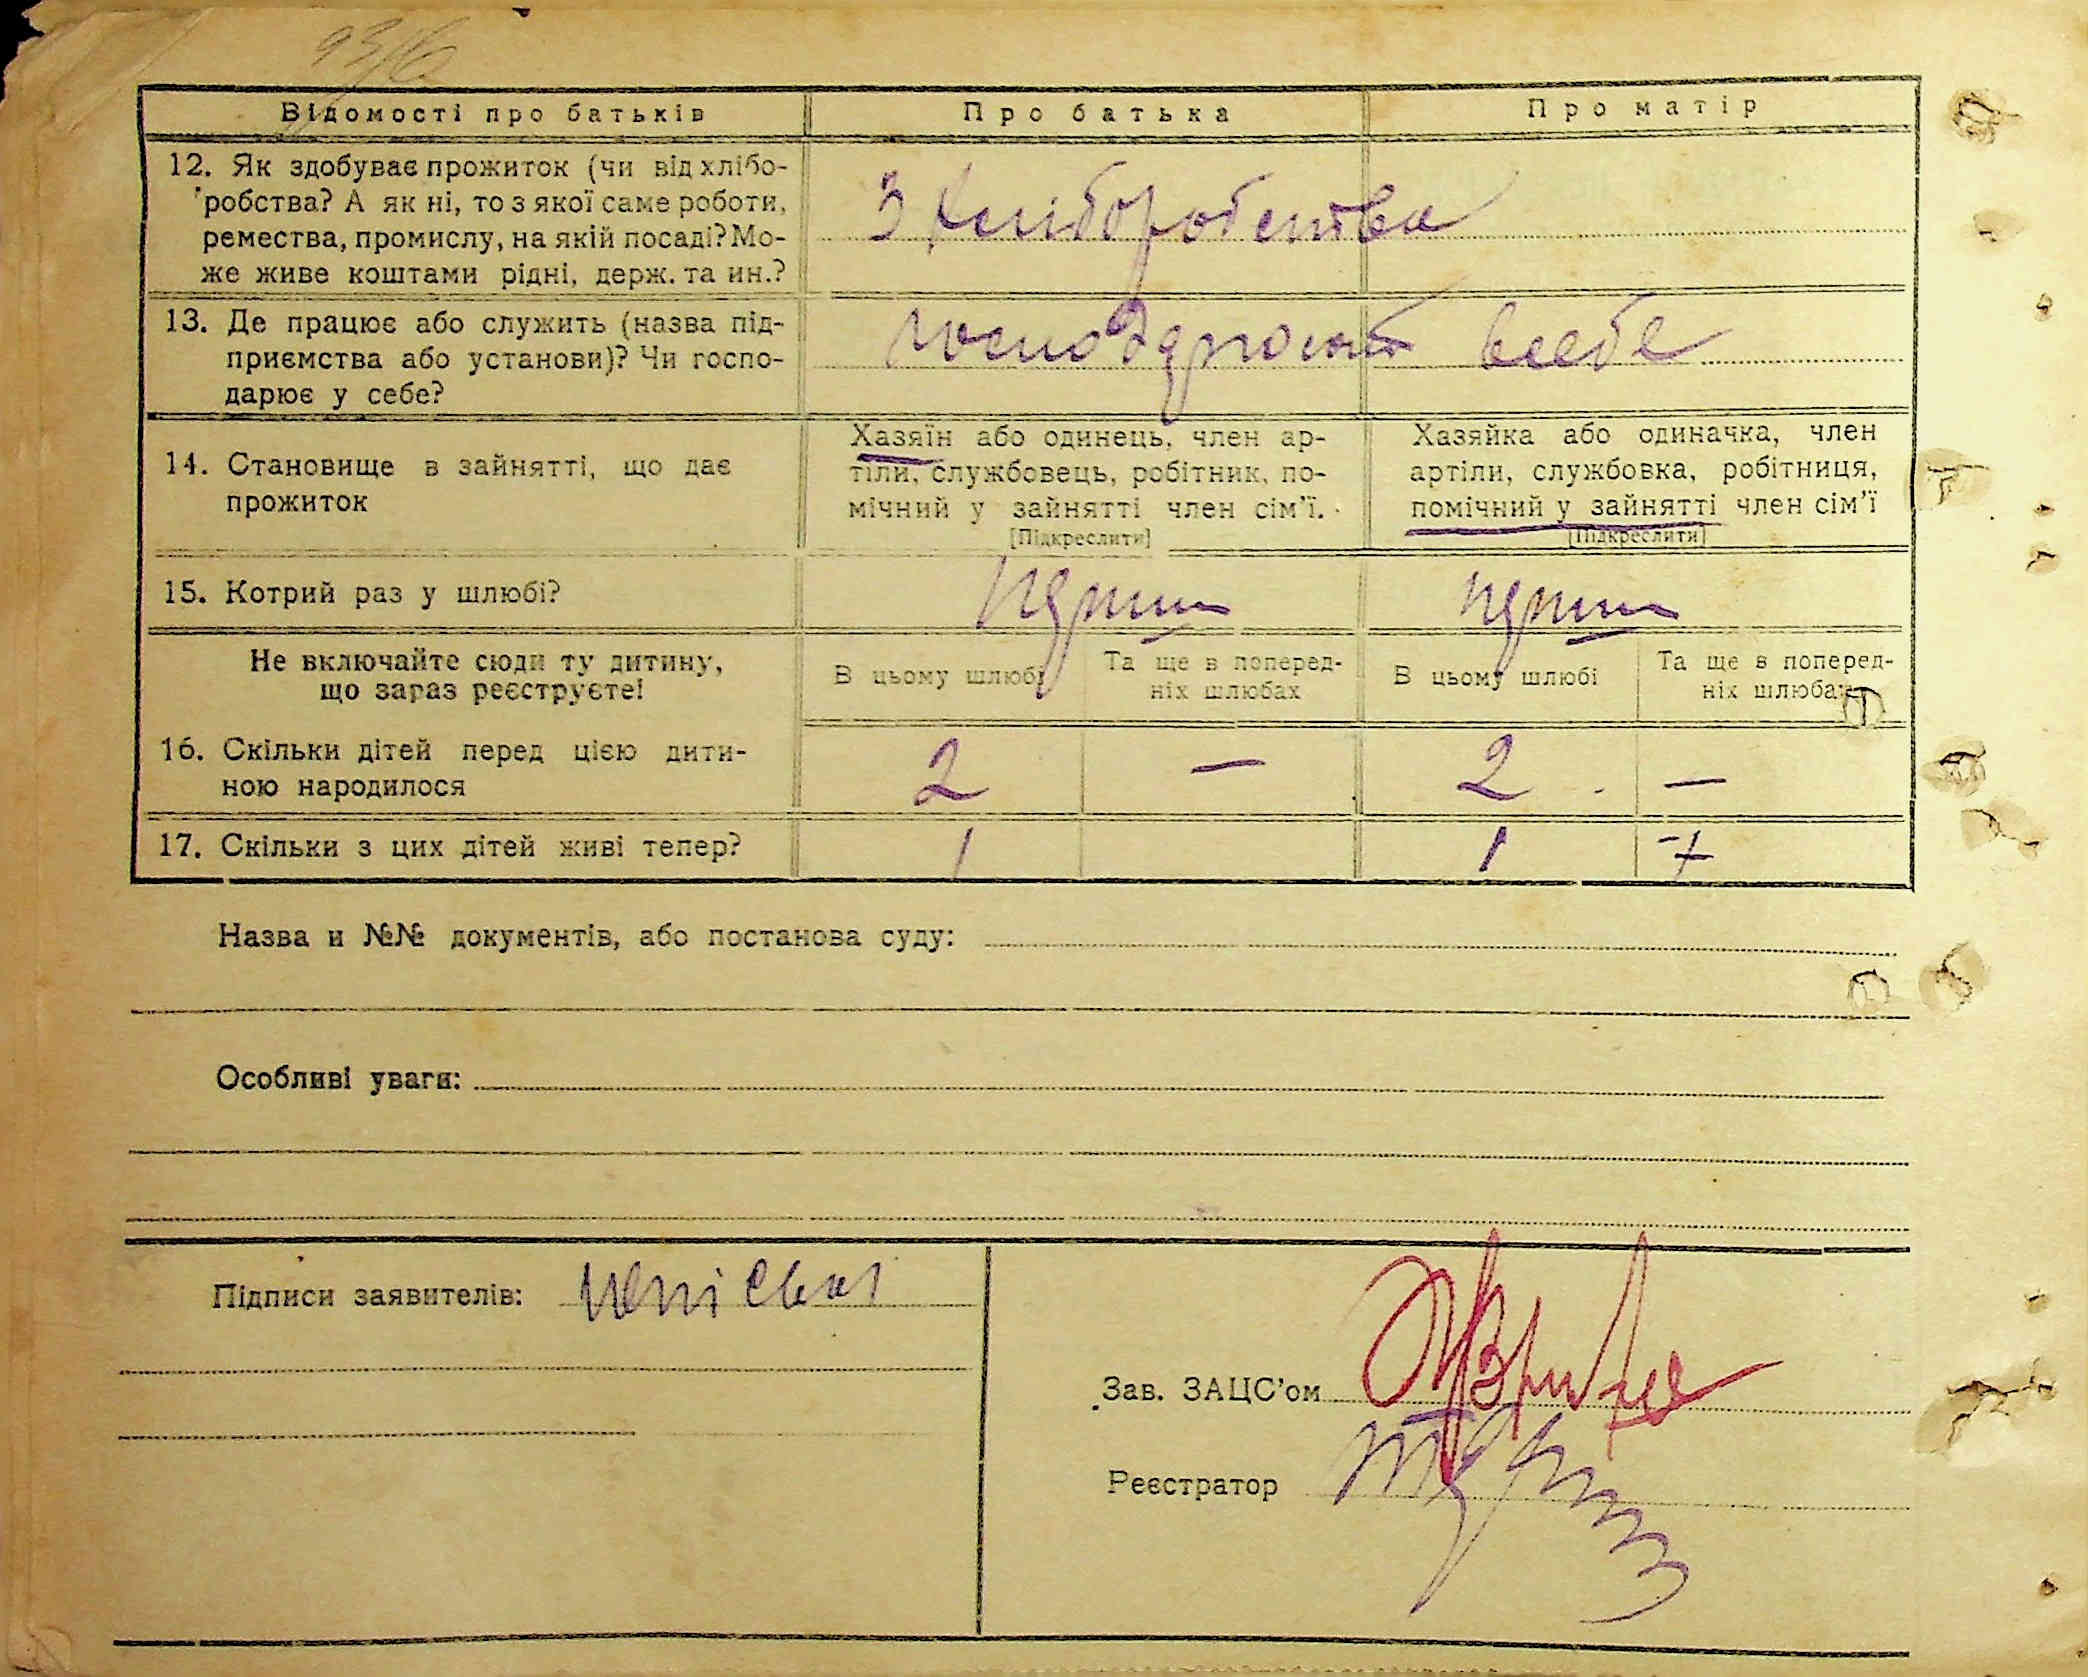 Відомості про батьків
Про батька
Про матір
12. Як здобуває прожиток (чи від хлібо-
робства? А як ні, то з якої саме роботи,
ремества, промислу, на якій посаді? Мо-
же живе коштами рідні, держ. та ин.?
З хліборобства
13. Де працює або служить (назва під-
приємства або установи)? Чи госпо-
дарює у себе?
господарюют всебе
14. Становище в зайнятті, що дає
прожиток
Хазяїн або одинець, член ар-
тіли, службовець, робітник, по-
мічний у зайнятті член сім'ї.
[Підкреслити]
Хазяйка або одиначка, член
артіли, службовка, робітниця,
помічний у зайнятті член сім'ї
[Підкреслити]
15. Котрий раз у шлюбі?
перши
перши
Не включайте сюди ту дитину,
що зараз реєструєте!
В цьому шлюбі
Та ще в поперед-
ніх шлюбах
В цьому шлюбі
Та ще в поперед-
ніх шлюбах
16. Скільки дітей перед цією дити-
ною народилося
2 — 2 —
17. Скільки з цих дітей живі тепер?
1 1
Назва и №№ документів, або постанова суду:
Особливі уваги:
Підписи заявителів:
Зав. ЗАЦС'ом
Реєстратор